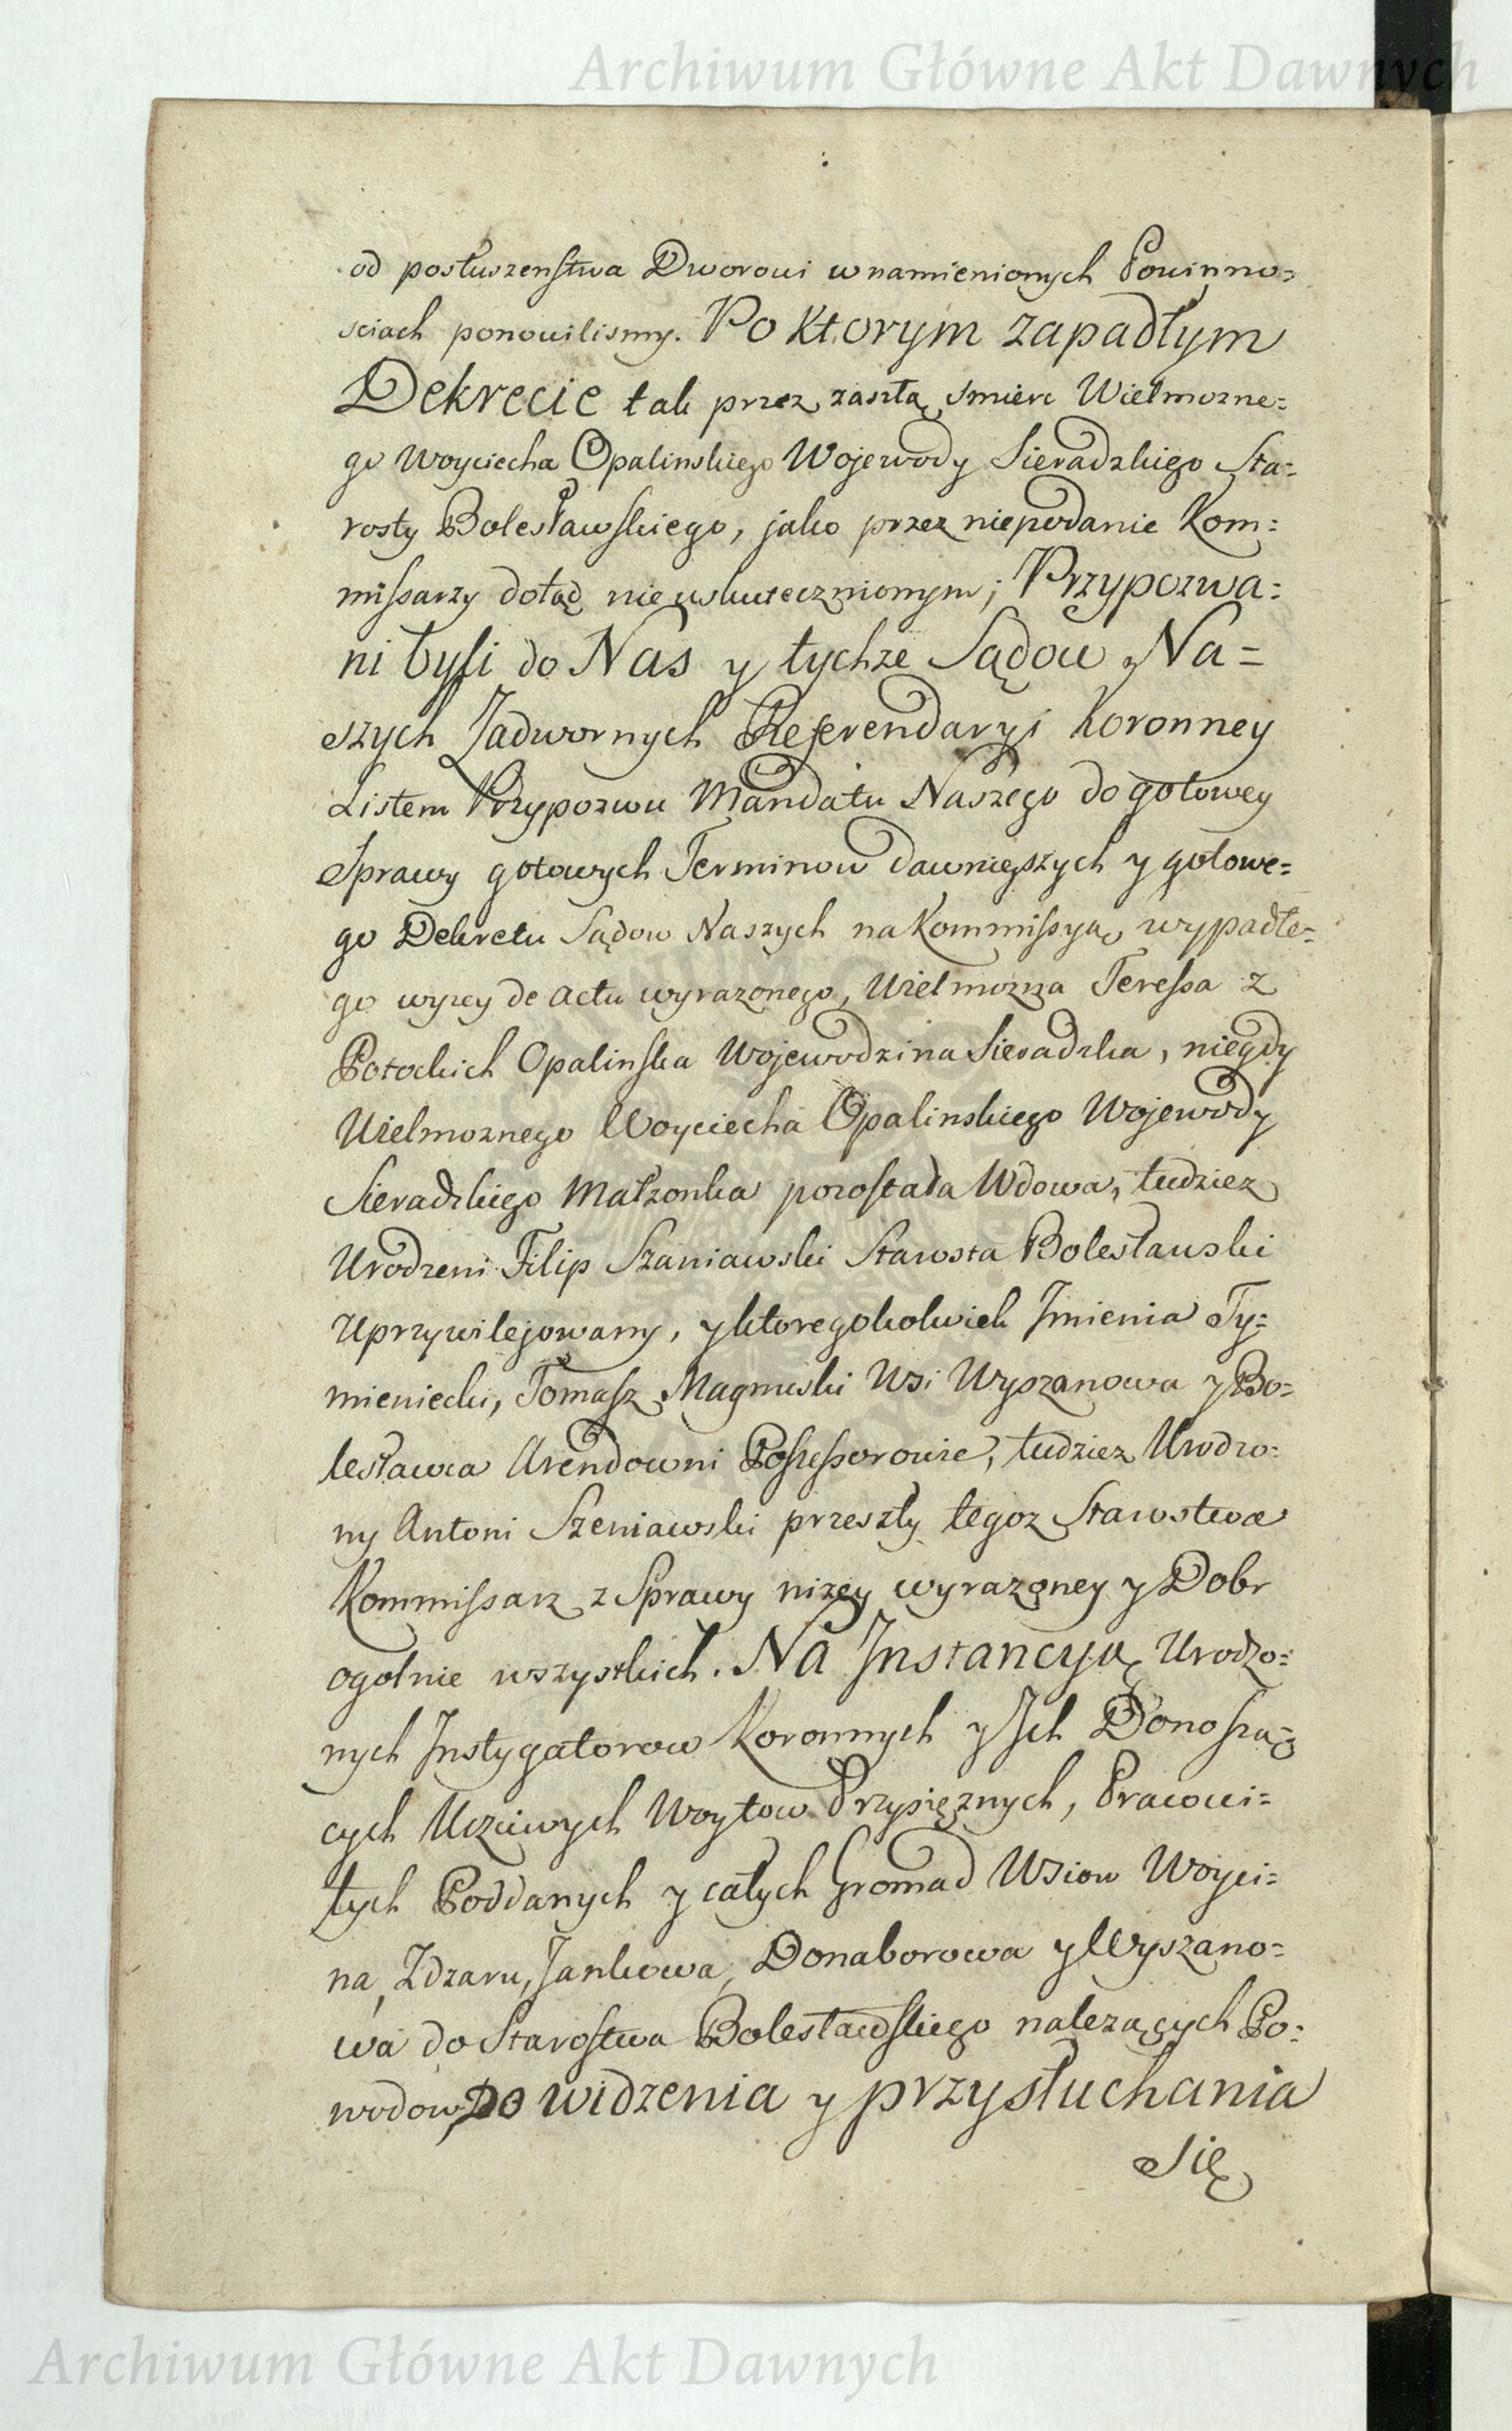 Archiwum Główne Akt Dawnych
od posłuszenstwa Dworowi w namienionych Powinno=
sciach ponowilismy. Po ktorym zapadłym
Dekrecie tak przez zaszłą smierc Wielmozne=
go Woyciecha Opalinskiego Wojewody Sieradzkiego Sta=
rosty Bolesławskiego, jako przez niepodanie Kom=
missarzy dotąd nieuskutecznionym; Przypozwa=
ni byli do Nas y tychze Sądow Na=
szych Zadwornych Referendaryi Koronney
Listem Przypozwu Mandatu Naszego do gotowey
Sprawy gotowych Terminow dawnieyszych y gotowe=
go Dekretu Sądow Naszych na Kommissyą wypadłe=
go wyzey de actu wyrazonego, Wielmozna Teressa z
Potockich Opalinska Wojewodzina Sieradzka, niegdy
Wielmoznego Woyciecha Opalinskiego Wojewody
Sieradzkiego Małzonka pozostała Wdowa, tudziez
Urodzeni Filip Szaniawski Starosta Bolesławski
Uprzywilejowany, y ktoregokolwiek Jmienia Ty=
mieniecki, Tomasz Magnuski Wsi Wyszanowa y Bo=
lesławca Arendowni Possessorowie, tudziez Urodzo=
ny Antoni Szeniawski przeszły tegoz Starostwa
Kommissarz z Sprawy nizey wyrazoney y Dobr
ogolnie wszystkich. Na Jnstancyą Urodzo=
nych Jnstygatorow Koronnych y Jch Donoszą=
cych Uczciwych Woytow Przysięznych, Pracowi=
tych Poddanych y całych Gromad Wsiow Woyci=
na, Zdzaru, Jankowa, Donaborowa y Wyszano=
wa do Starostwa Bolesławskiego nalezących Po=
wodow, Do widzenia y przysłuchania
Się
Archiwum Główne Akt Dawnych